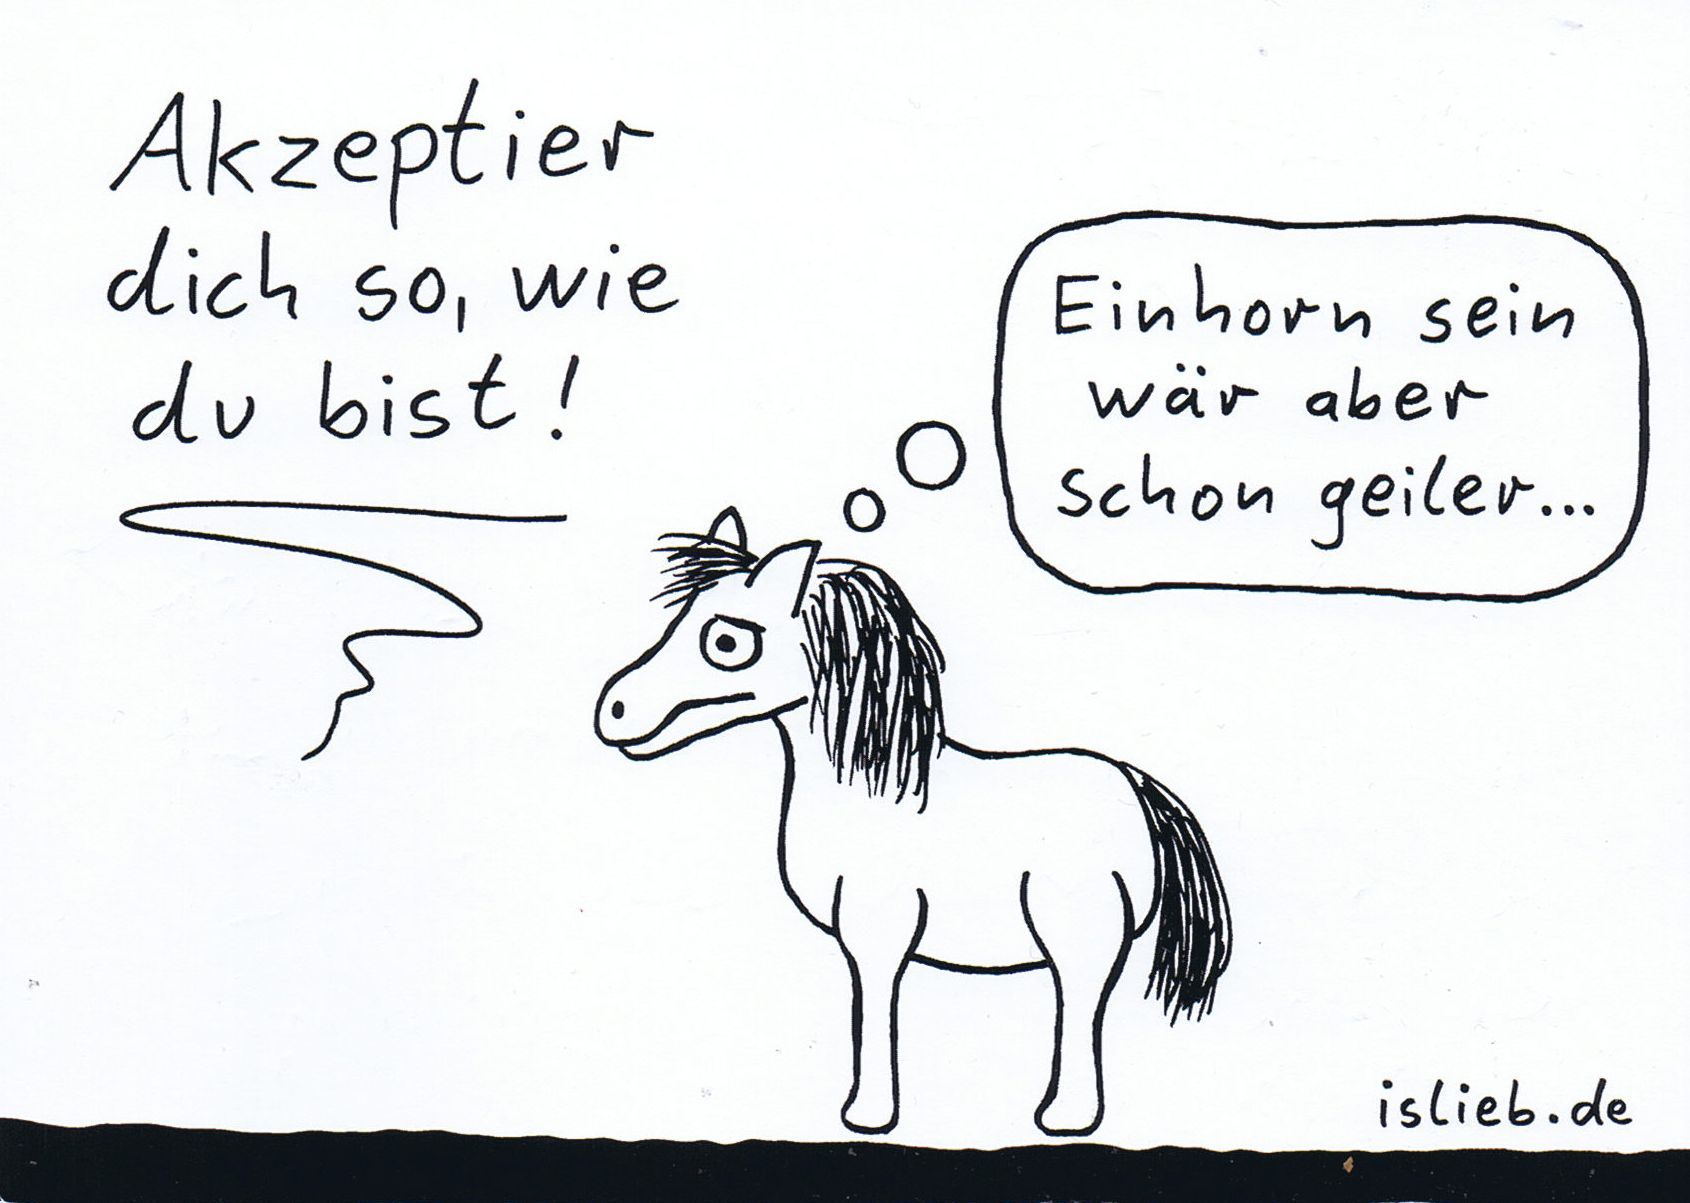 Akzeptier
dich so, wie
du bist!
Einhorn sein
wär aber
schon geiler...
islieb.de